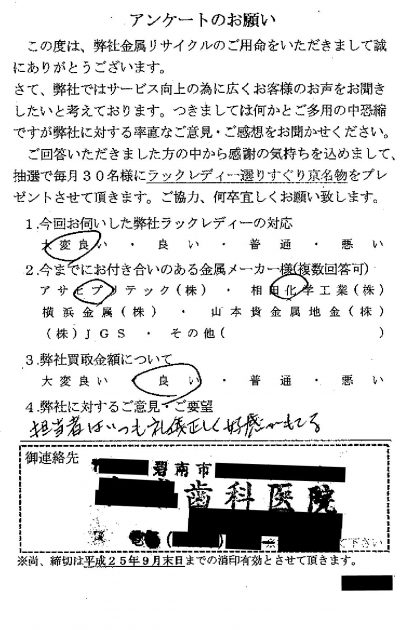 アンケートのお願い
この度は、弊社金属リサイクルのご用命をいただきまして誠
にありがとうございます。
さて、弊社ではサービス向上の為に広くお客様のお声をお聞き
したいと考えております。つきましては何かとご多用の中恐縮
ですが弊社に対する率直なご意見・ご感想をお聞かせください。
ご回答いただきました方の中から感謝の気持ちを込めまして、
抽選で毎月30名様にラックレディー選りすぐり京名物をプレ
ゼントさせて頂きます。ご協力、何卒宜しくお願い致します。
1.今回お伺いした弊社ラックレディーの対応
大変良い・良い・普通・悪い
2.今までにお付き合いのある金属メーカー様(複数回答可)
アサヒプリテック(株)・相田化学工業(株)
横浜金属(株)・山本貴金属地金(株)
(株)JGS・その他( )
3.弊社買取金額について
大変良い・良い・普通・悪い
4.弊社に対するご意見・ご要望
担当者はいつも礼儀正しく好感がもてる
御連絡先
碧南市
歯科医院
電話(
下さい
※尚、締切は平成25年9月末日までの消印有効とさせて頂きます。